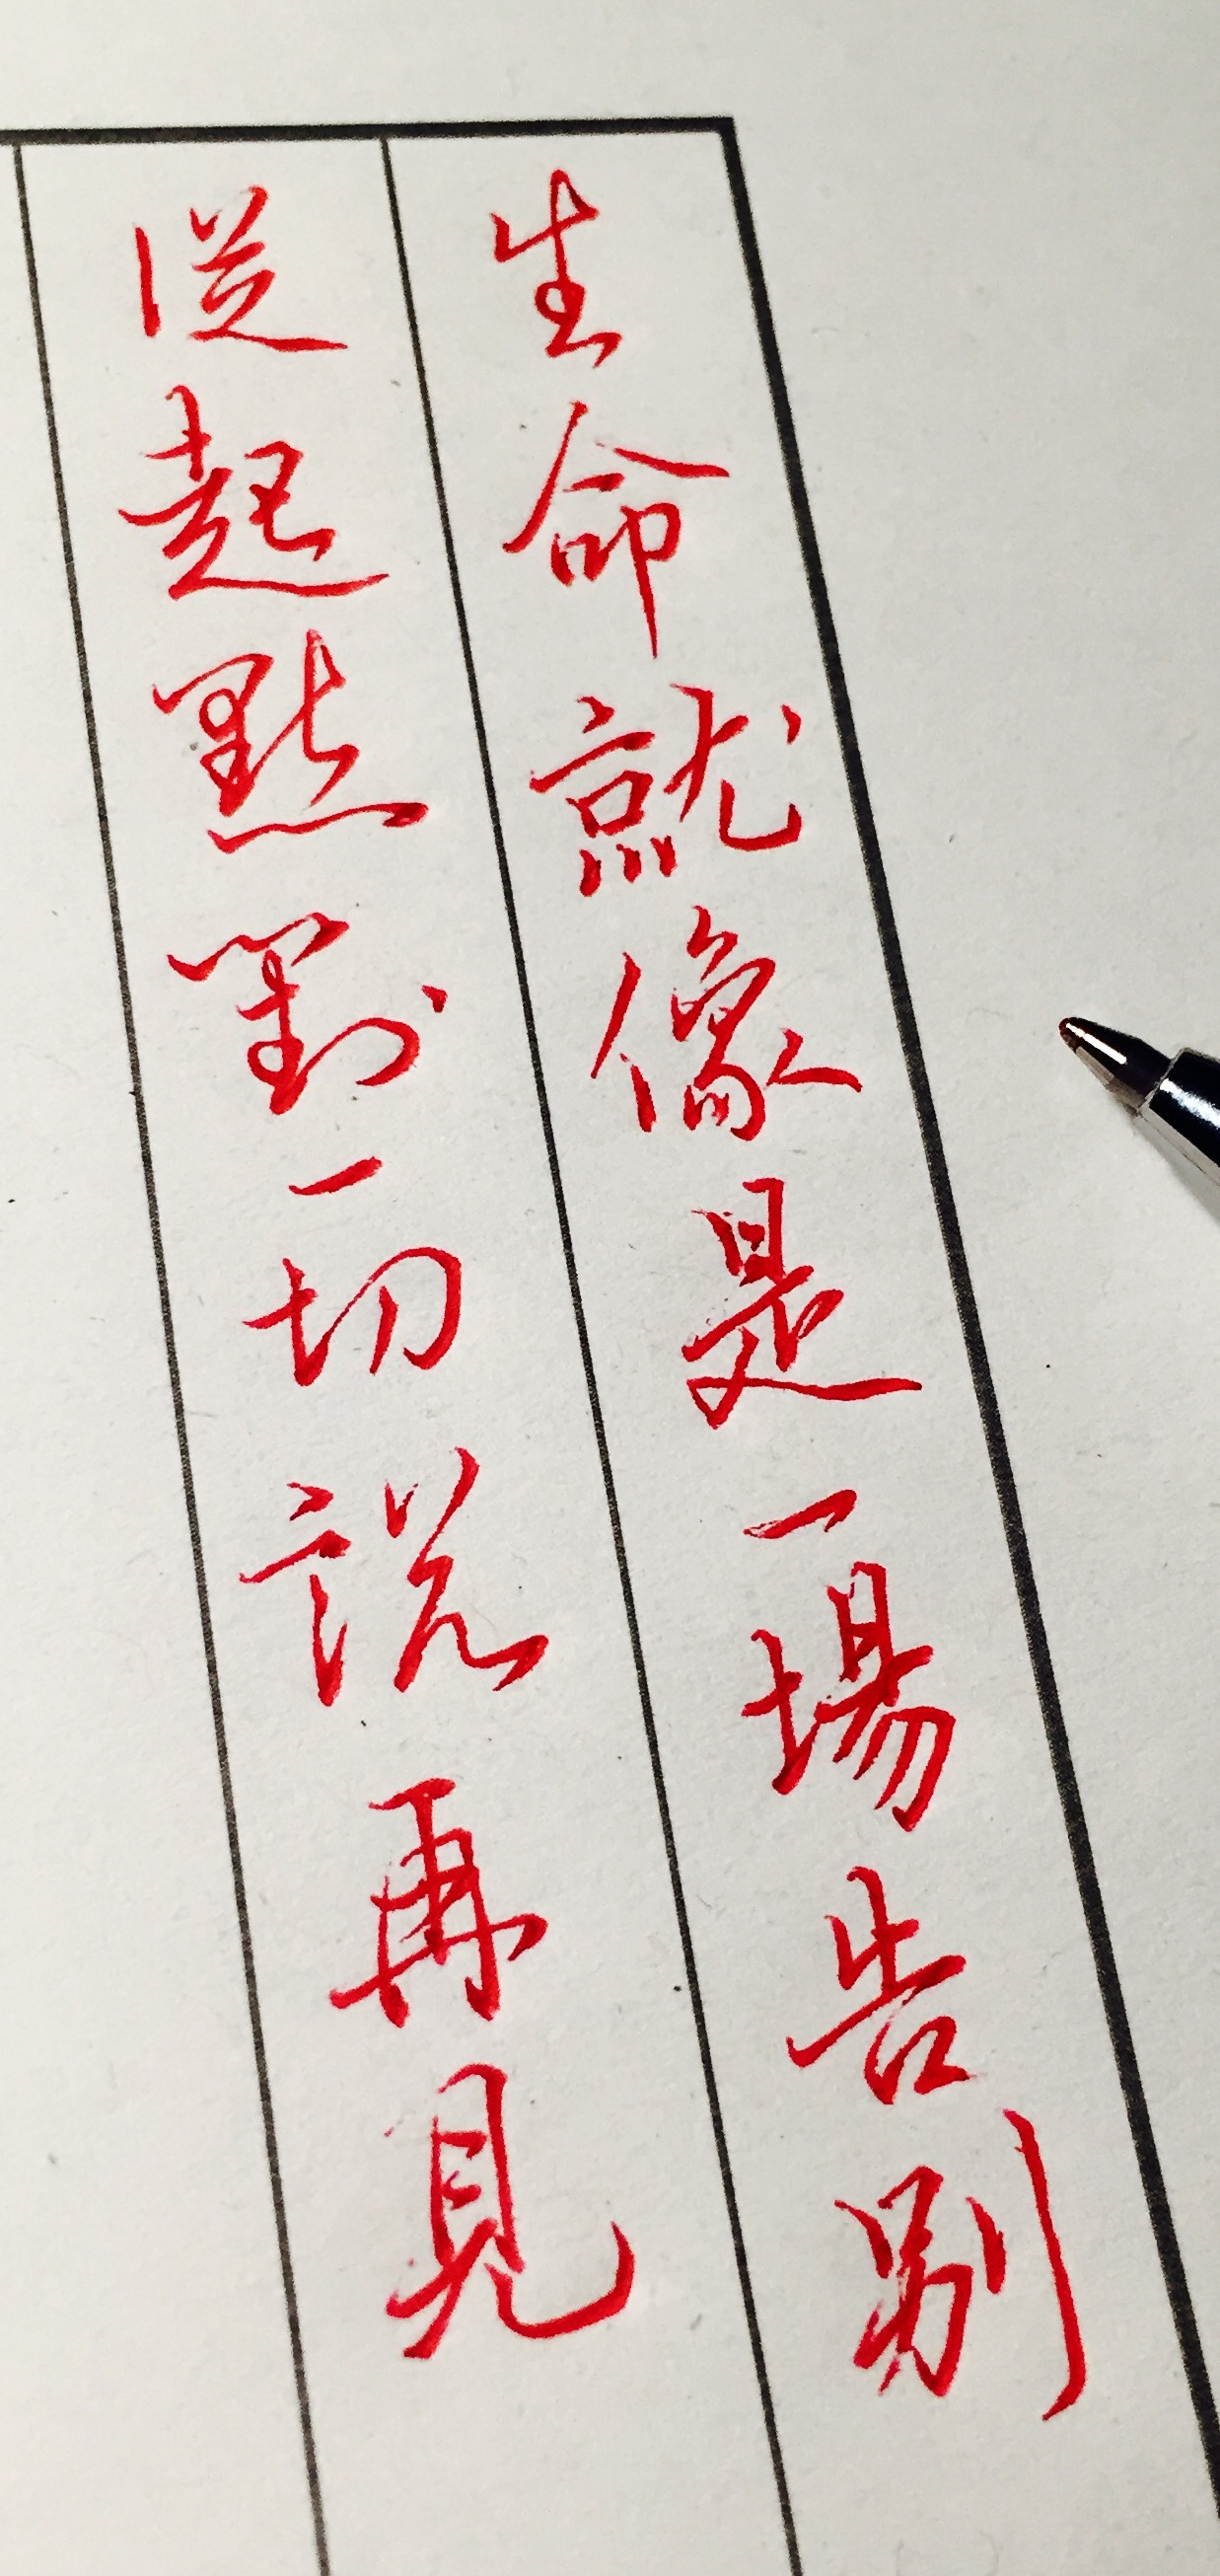 生命就像是一場告別
從起點對一切說再見